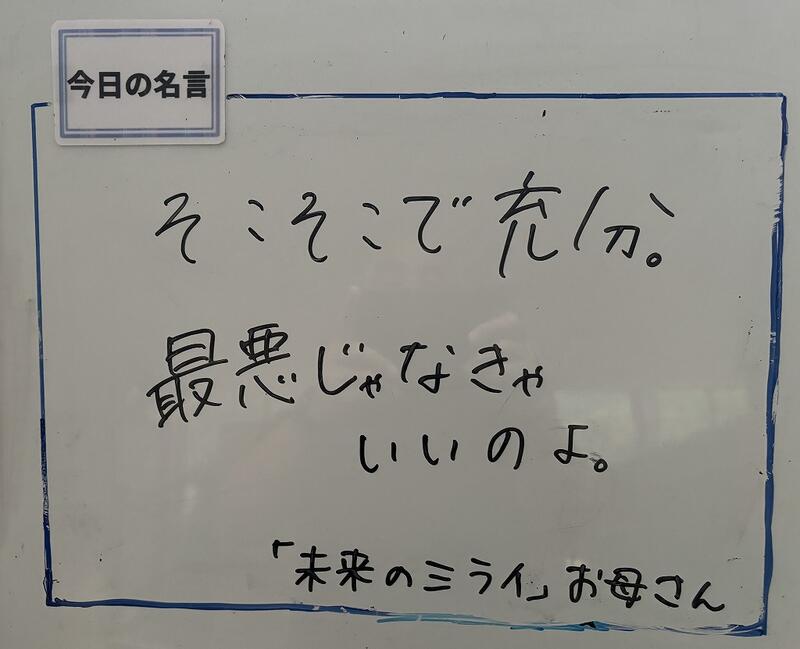 今日の名言
そこそこで充分。
最悪じゃなきゃ
いいのよ。
「未来のミライ」お母さん